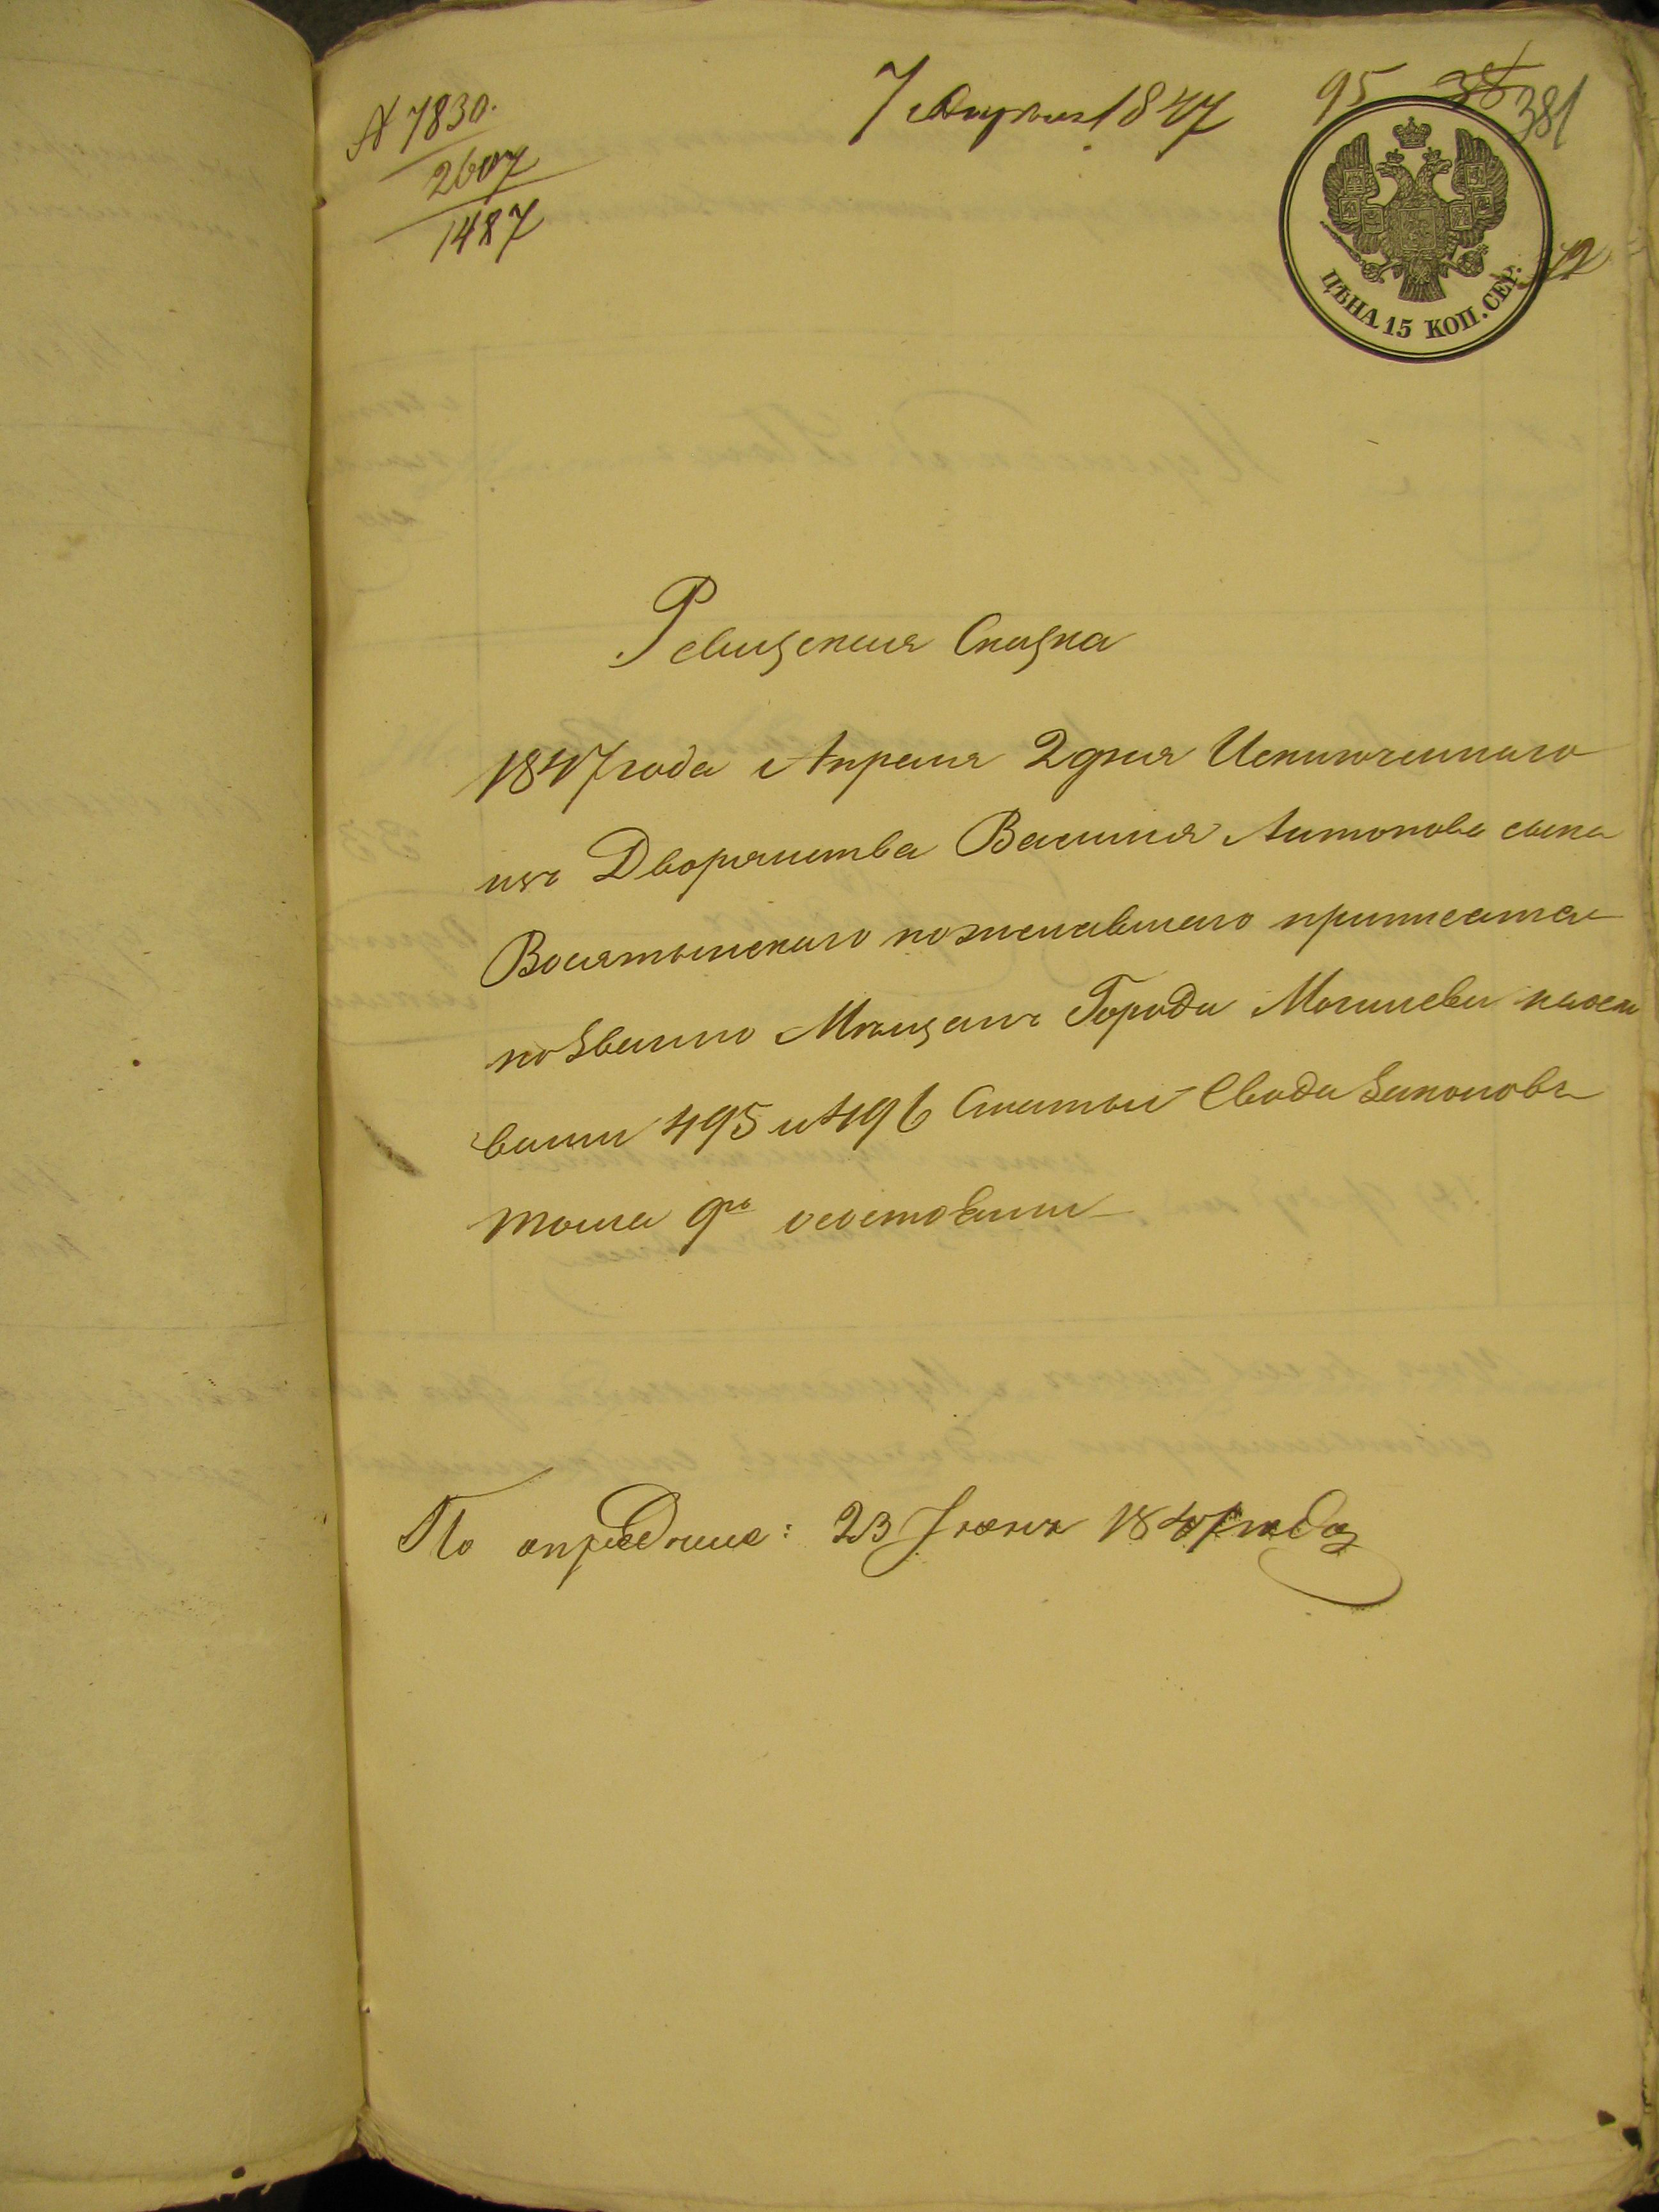 № 7830.
2607
1487
7 Апреля 1847
95 38 381
ЦѢНА 15 КОП. СЕР.
12
Ревизская Сказка
1847 года Апреля 2 дня Исключеннаго
изъ Дворянства Василия Антонова сына
пожелавшаго приписатся
по Званию Мѣщанъ Города Могилева наосно
вании 495 и 496 Статьи Свода Законовъ
тома 9го о состоянии
По определе: 23 Июня 1847 года